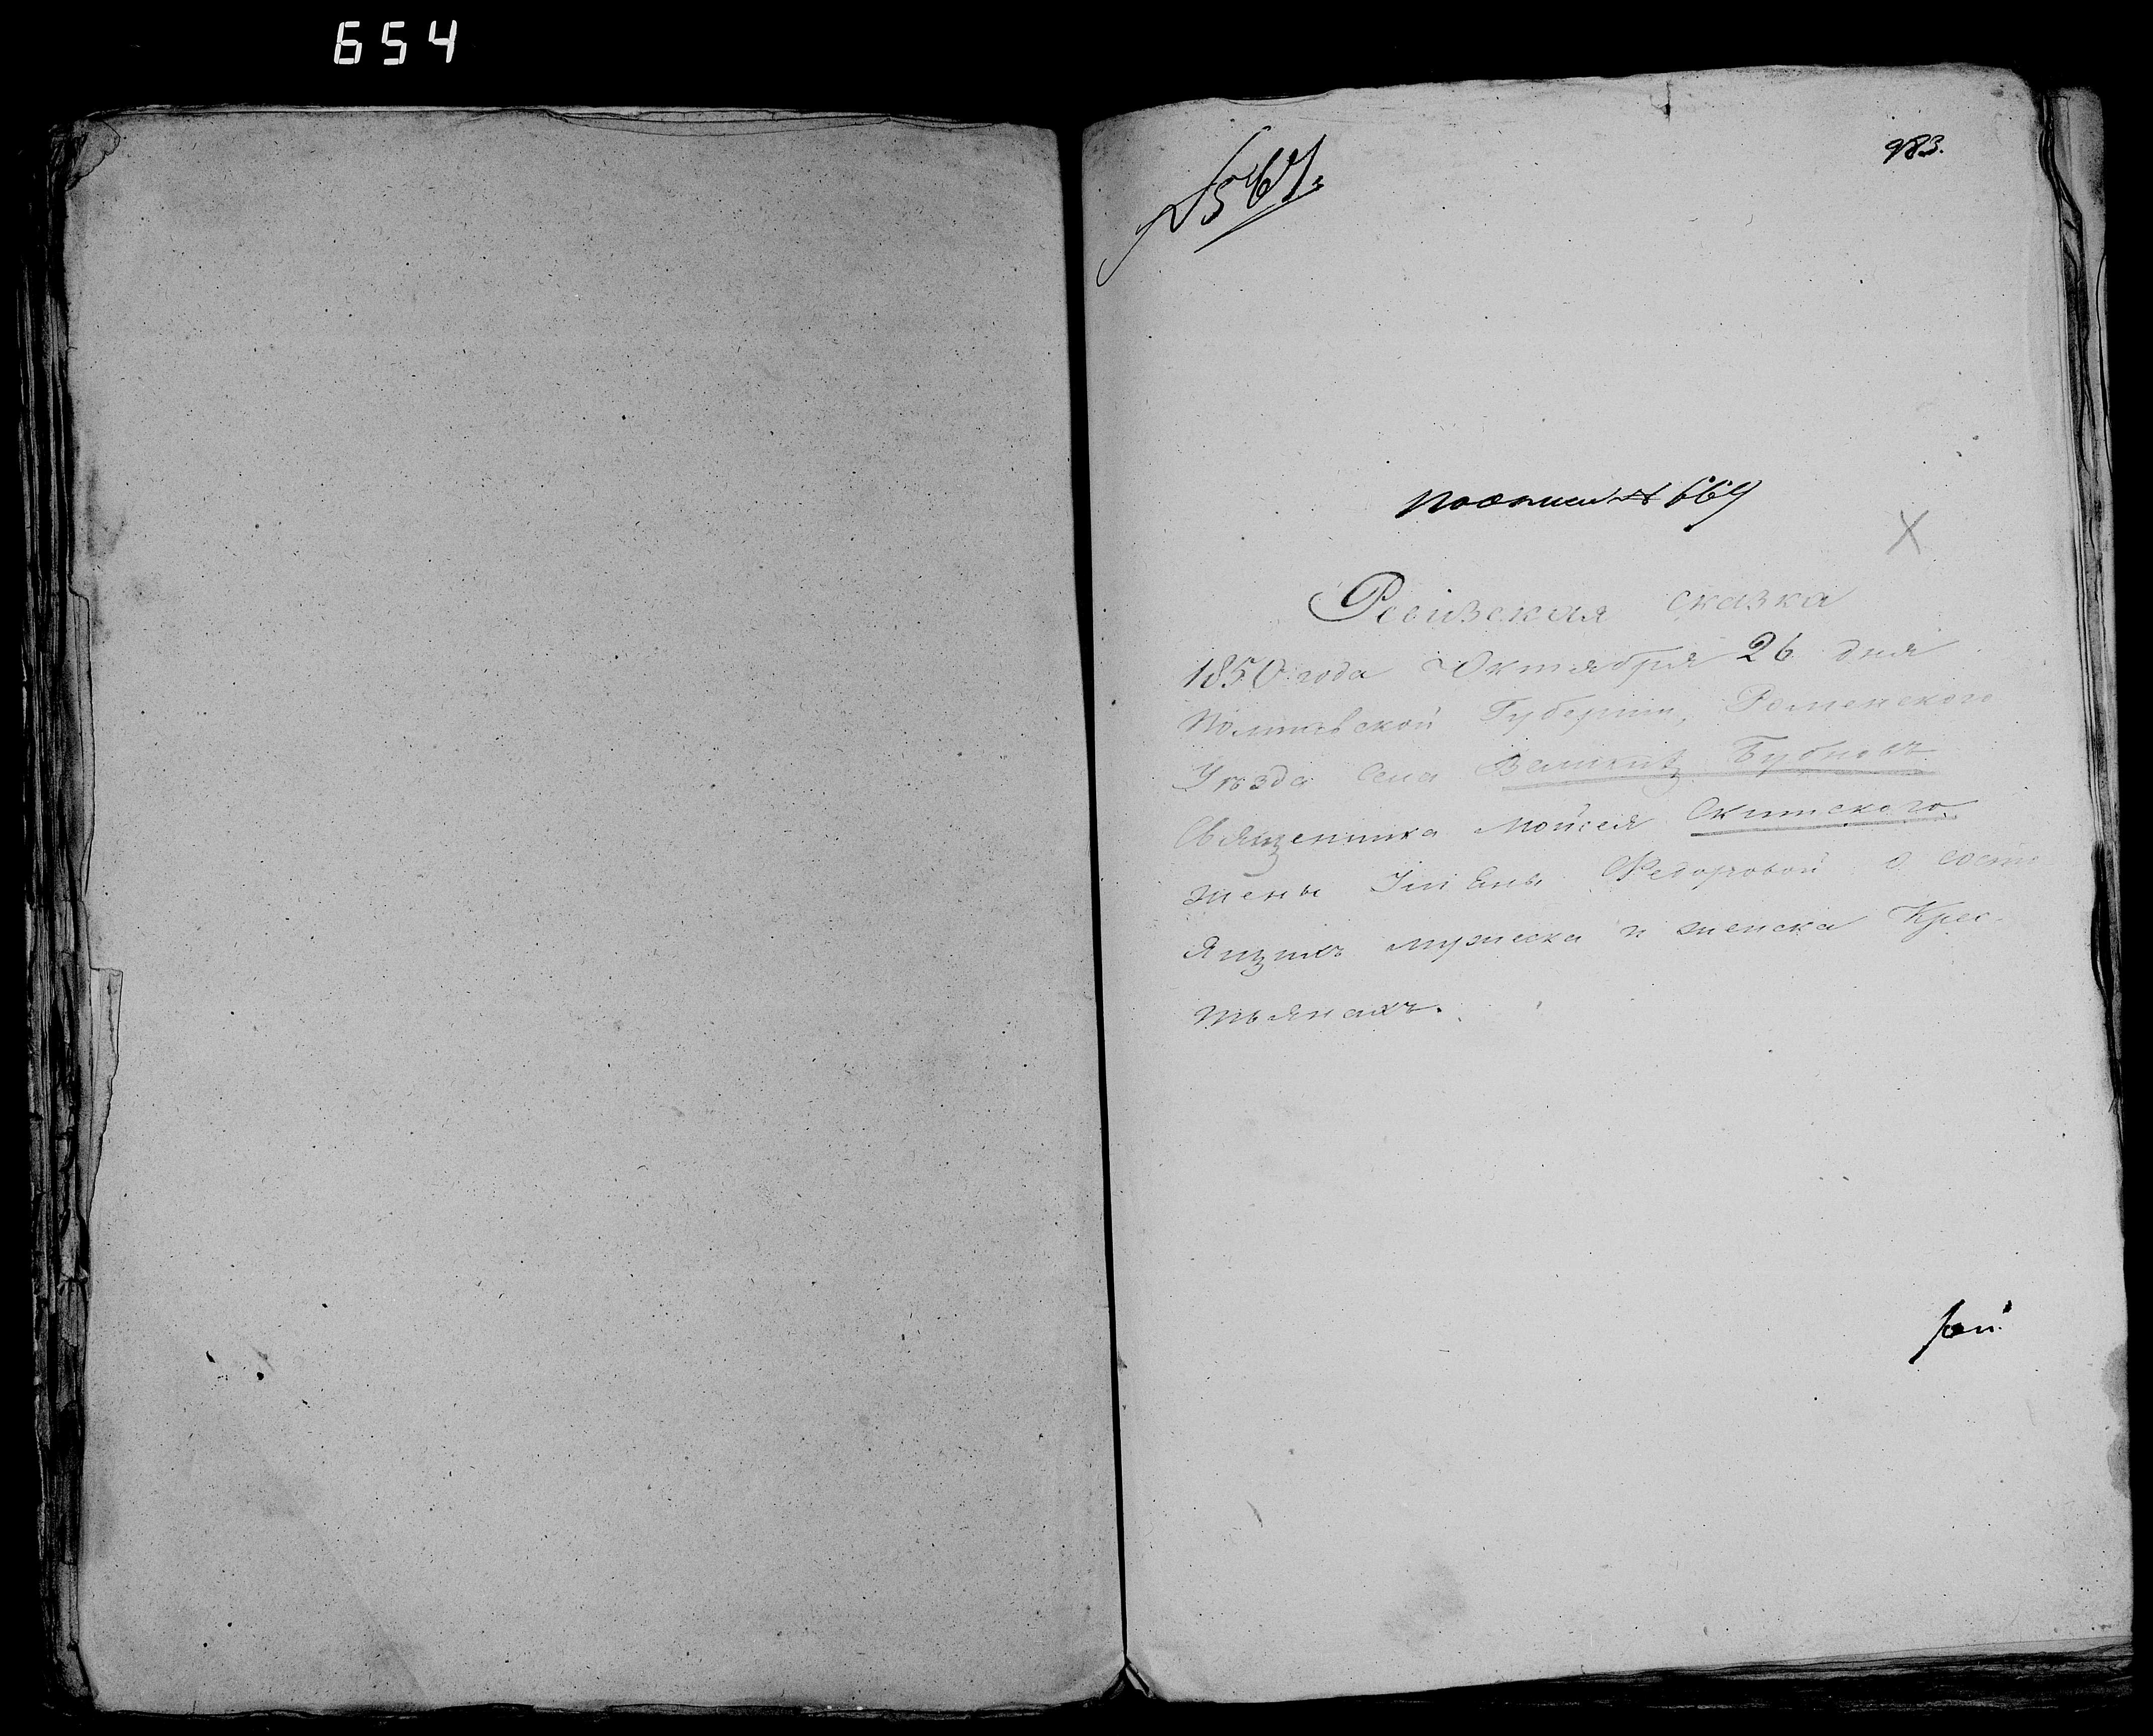 654
983.
№ 567.
По описи № 669
Ревизская сказка
1850 года Октября 26 дня
Полтавской Губернии, Роменского
Уезда Села Великихъ Бубновъ
Священника Мойсея Окипского
жены Федоровой о состо
ящихъ мужеска и женска Крес-
тьянахъ.